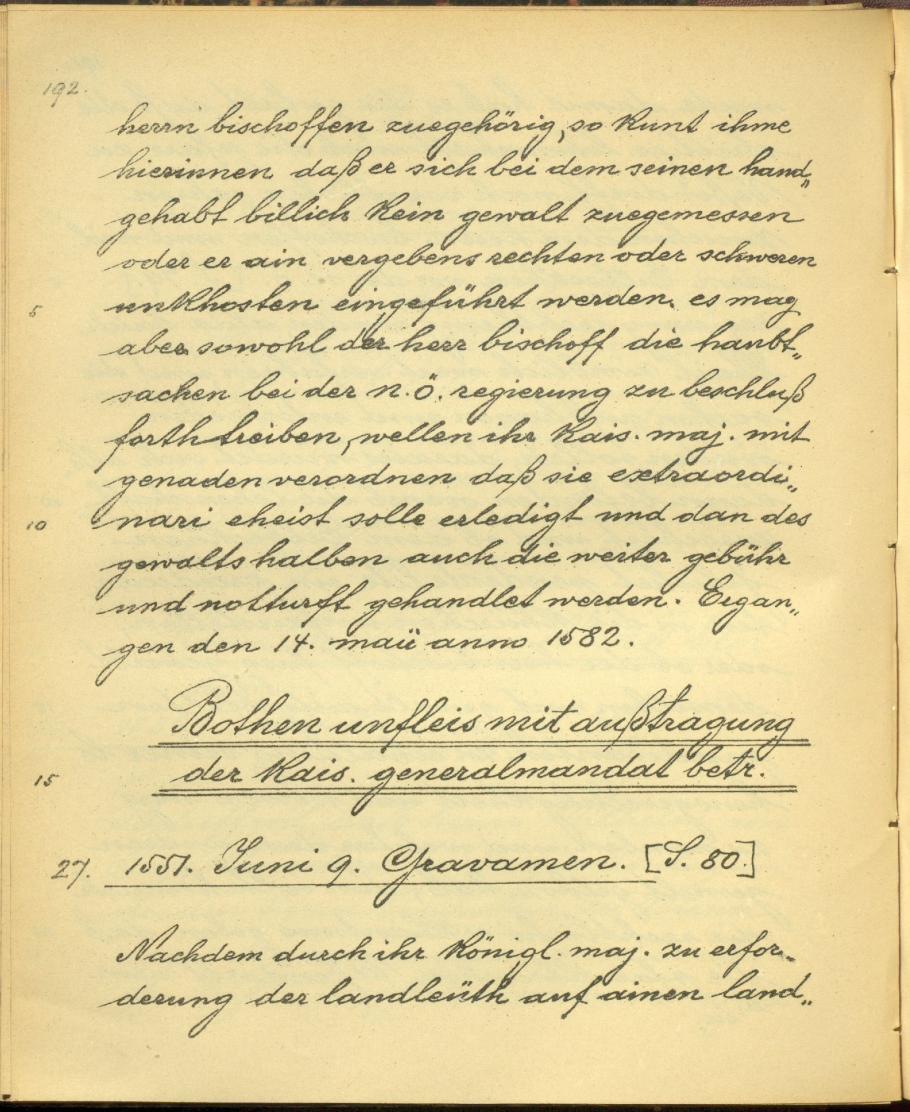 192.
herrn bischoffen zuegehörig, so kunt ihme
hierinnen daß er sich bei dem seinen hand„
gehabt billich kein gewalt zuegemessen
oder er ain vergebens rechten oder schweren
5 unkhosten eingeführt werden. es mag
aber sowohl der herr bischoff die haubt„
sachen bei der n. ö. regierung zu beschluß
forthtreiben, wellen ihr kais. maj. mit
genaden verordnen daß sie extraordi„
10 nari eheist solle erledigt und dan des
gewalts halben auch die weiter gebühr
und notturft gehandlet werden. Ergan„
gen den 14. maii anno 1582.
Bothen unfleis mit außtragung
15 der kais. generalmandat betr.
27. 1551. Juni 9. Gravamen. [S. 80.]
Nachdem durch ihr königl. maj. zu erfor„
derung der landleüth auf ainen land„